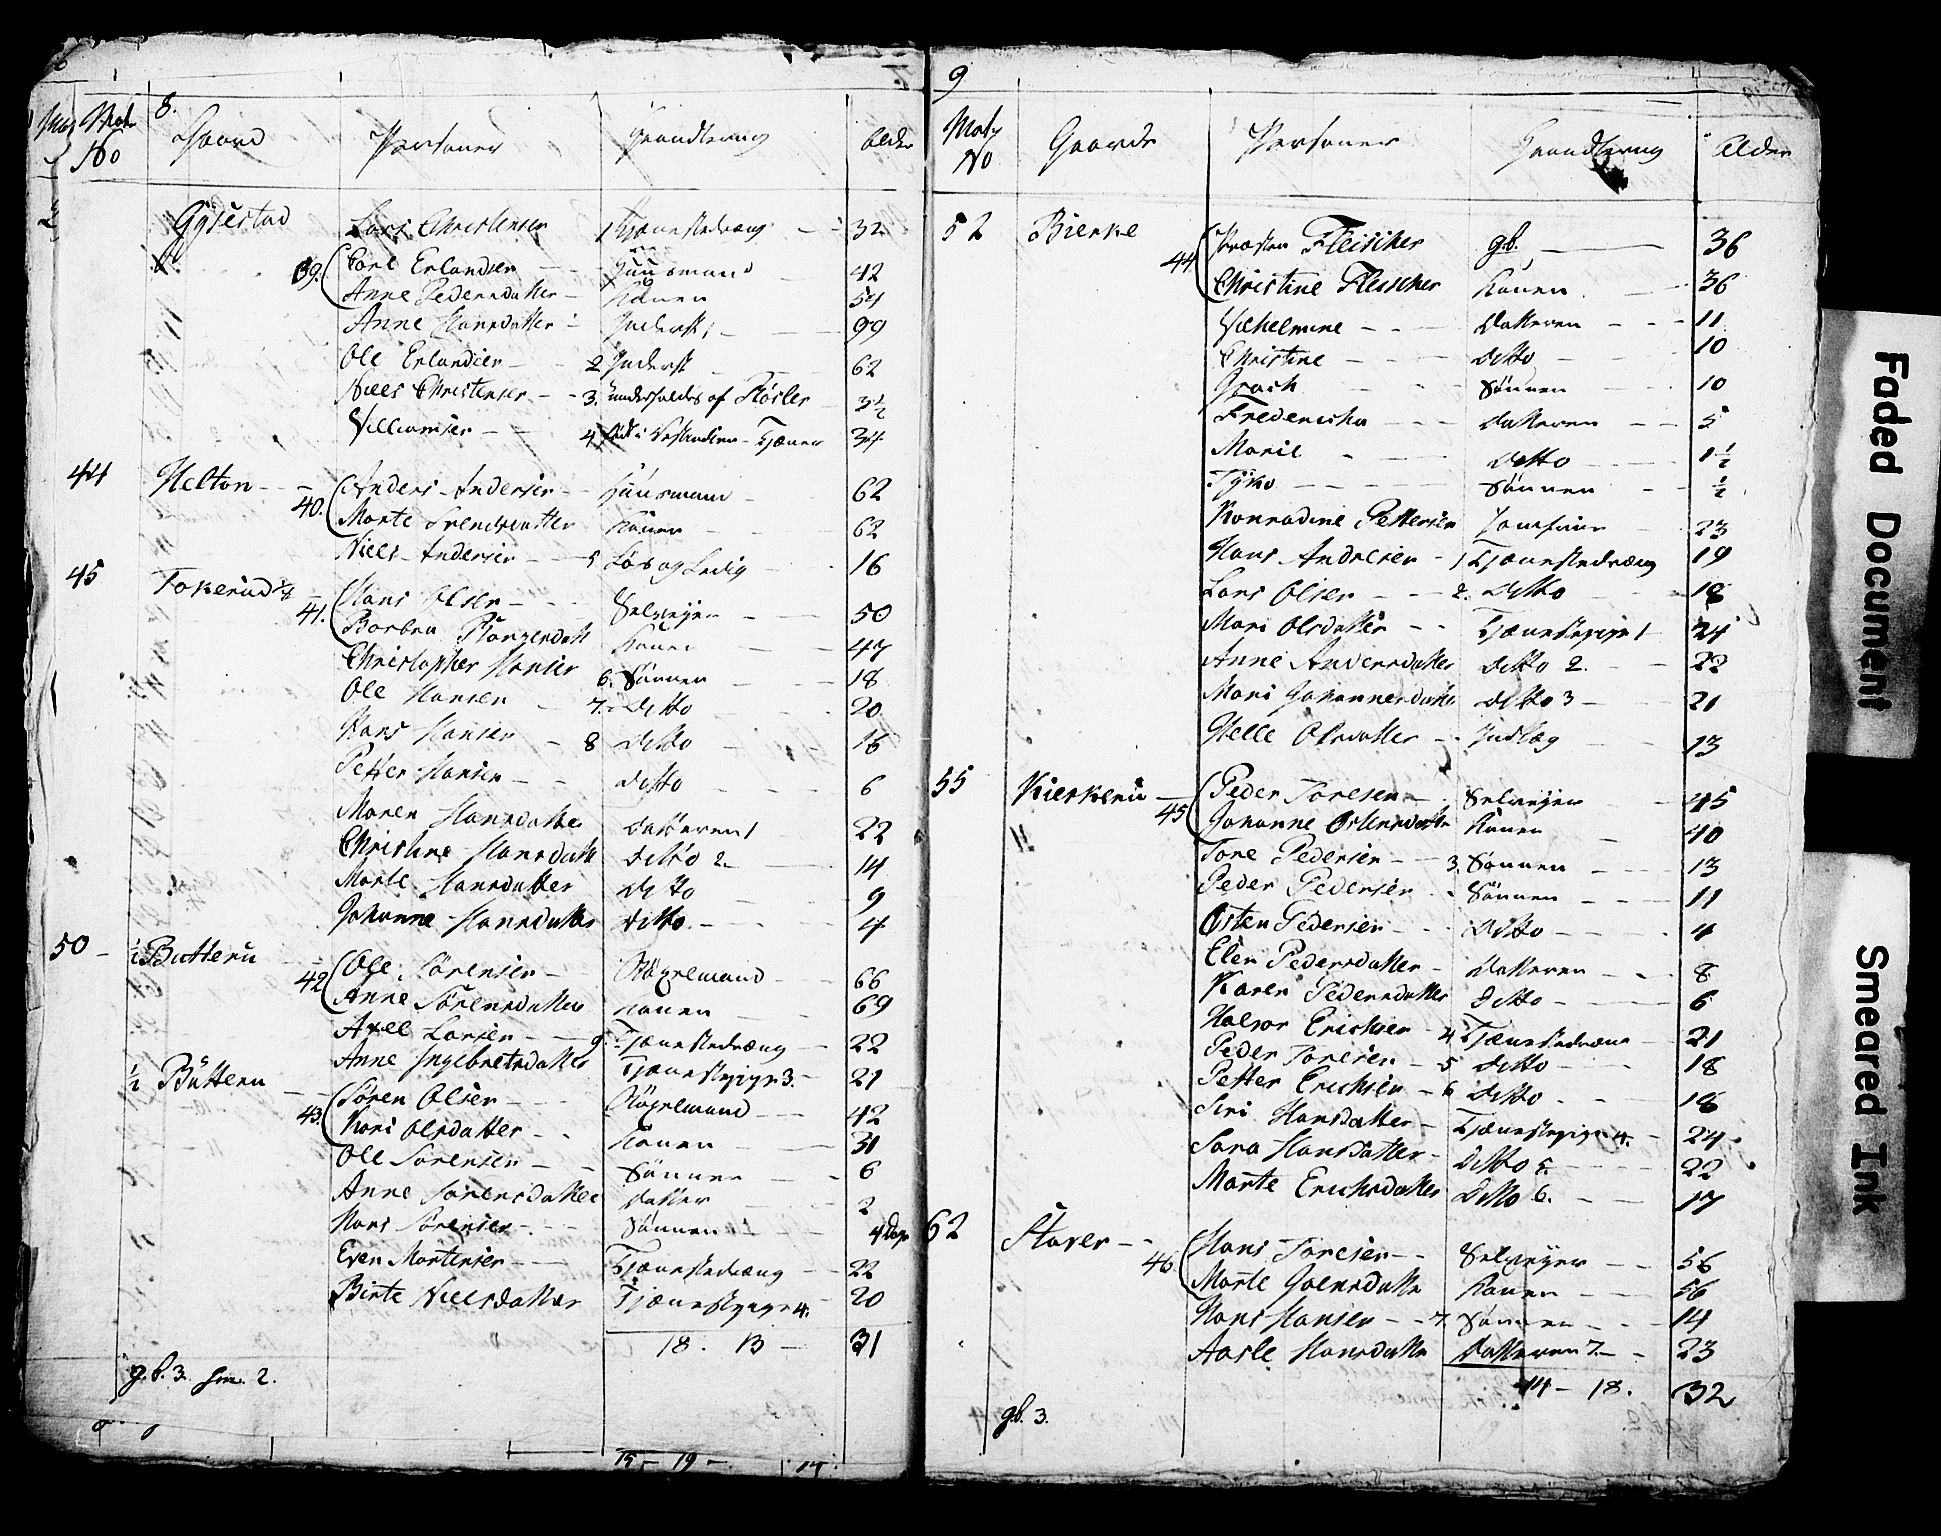 8.
Mat. No Gaard Personer Haandtering Alder
Gjystad Lars Christensen 1 Tjænestedræng 32
39. Carl Erlandsen Huusmand 42
Anne Pedersdatter Konen 54
Anne Hansdatter Inderst 99
Ole Erlandsen 2 Inderst 62
Niels Christensen 3. underholdes af Høsler 3½
Villumsen 4 Tjener 34
44 Helton 40. Anders Andersen Huusmand 62
Marte Svendsdatter Konen 62
Niels Andersen 5 Løs og Ledig 16
45 Tokerud 41. Hans Olsen Selvejer 50
Barbra Konen 47
Christopher Hansen 6. Sønnen 18
Ole Hansen 7. Ditto 20
Hans Hansen 8 Ditto 16
Petter Hansen Ditto 6
Maren Hansdatter Datteren 1 22
Christine Hansdatt Ditto 2. 14
Marte Hansdatter Ditto 9
Johanne Hansdatter Ditto 4
50 ½ Butteru 42 Ole Sörensen 66
Anne Sörensdatter Konen 69
Axel Larsen 9. Tjænestedræng 22
Anne Ingebretsdatter Tjænestepige 3. 21
½ Butteru 43. Sören Olsen 42
Kari Olsdatter Konen 31
Ole Sorensen Sönnen 6
Anne Sorensdatter Datter 2
Hans Sörensen Sönnen 4 Dage
Even Mortensen Tjænestedræng 22
Birte Nielsdatter Tjænestepige 4. 20
18. 13 31
g.b. 3. 2.
15 - 19 -
9
Mat. No Gaarde Personer Haandtering Alder
52 Bierke 44 Præsten Fleischer gb. 36
Christine Fleischer Konen 36
Vilhelmine Datteren 11
Christine Ditto 10
Sönnen 10
Fredericka Datteren 5
Marie Ditto 1½
Tyko Sönnen ½
Konradine Pettersen Jomfrue 23
Hans Andresen 1 Tjænestedræng 19
Lars Olsen 2. Ditto 18
Mari Olsdatter Tjænestepige 1 24
Anne Andersdatter Ditto 2. 22
Mari Johannesdatter Ditto 3 21
Helle Olsdatter Indlæg 13
55 Kierkeru 45 Peder Toresen Selvejer 45
Johanne Ostensdatter Konen 40
Tore Pedersen 3. Sönnen 13
Peder Pedersen Sönnen 11
Østen Pedersen Ditto 4
Elen Pedersdatter Datteren 8
Karen Pedersdatter Ditto 6
Halvor Erichsen 4 Tjænestedræng 21
Peder Toresen 5 Ditto 18
Petter Erichsen 6 Ditto 18
Siri Hansdatter Tjænestepige 4. 24
Sara Hansdatter Ditto 5. 22
Marte Erichsdatter Ditto 6. 17
62 Haver 46 Hans Toresen Selvejer 56
Marte Konen 56
Hans Hansen 7. Sönnen 14
Aasle Hansdatter Datteren 7. 23
14 - 18. 32
gb. 3.
Faded Document
Smeared Ink